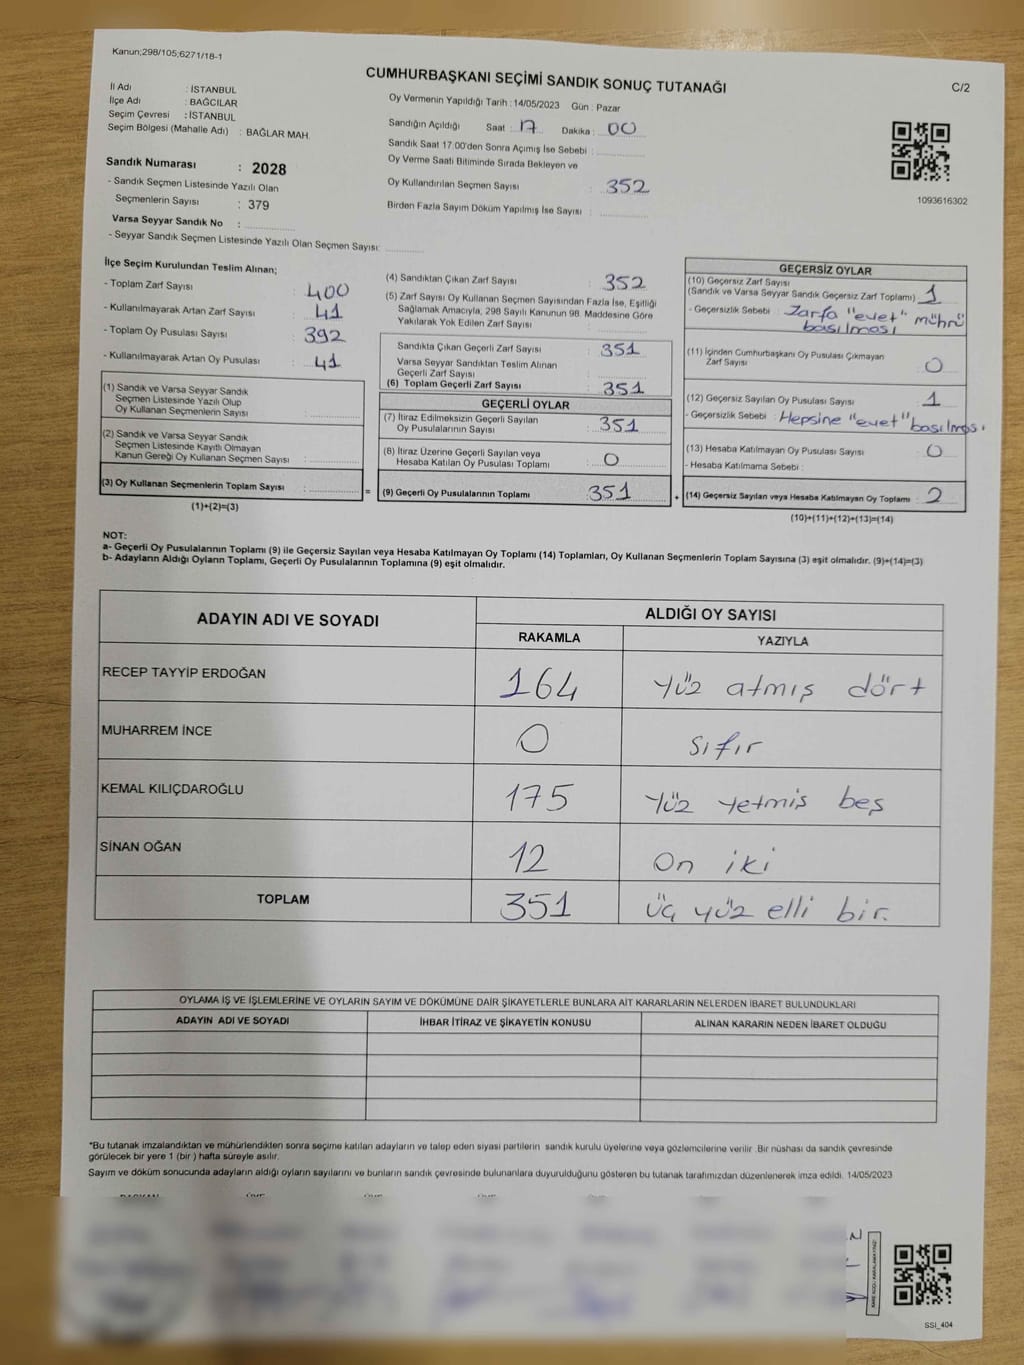 Kanun;298/105;6271/18-1
CUMHURBAŞKANI SEÇİMİ SANDIK SONUÇ TUTANAĞI
C/2
İl Adı : İSTANBUL
İlçe Adı : BAĞCILAR
Seçim Çevresi : İSTANBUL
Seçim Bölgesi (Mahalle Adı) : BAĞLAR MAH.
Sandık Numarası : 2028
- Sandık Seçmen Listesinde Yazılı Olan
Seçmenlerin Sayısı : 379
Varsa Seyyar Sandık No :
- Seyyar Sandık Seçmen Listesinde Yazılı Olan Seçmen Sayısı:
Oy Vermenin Yapıldığı Tarih : 14/05/2023 Gün : Pazar
Sandığın Açıldığı Saat : 17 Dakika : 00
Sandık Saat 17:00'den Sonra Açımış İse Sebebi :
Oy Verme Saati Bitiminde Sırada Bekleyen ve
Oy Kullandırılan Seçmen Sayısı : 352
Birden Fazla Sayım Döküm Yapılmış İse Sayısı :
1093616302
İlçe Seçim Kurulundan Teslim Alınan;
- Toplam Zarf Sayısı : 400
- Kullanılmayarak Artan Zarf Sayısı : 41
- Toplam Oy Pusulası Sayısı : 392
- Kullanılmayarak Artan Oy Pusulası : 41
(1) Sandık ve Varsa Seyyar Sandık
Seçmen Listesinde Yazılı Olup
Oy Kullanan Seçmenlerin Sayısı :
(2) Sandık ve Varsa Seyyar Sandık
Seçmen Listesinde Kayıtlı Olmayan
Kanun Gereği Oy Kullanan Seçmen Sayısı :
(3) Oy Kullanan Seçmenlerin Toplam Sayısı :
(1)+(2)=(3)
(4) Sandıktan Çıkan Zarf Sayısı : 352
(5) Zarf Sayısı Oy Kullanan Seçmen Sayısından Fazla İse, Eşitliği
Sağlamak Amacıyla, 298 Sayılı Kanunun 98. Maddesine Göre
Yakılarak Yok Edilen Zarf Sayısı :
Sandıkta Çıkan Geçerli Zarf Sayısı : 351
Varsa Seyyar Sandıktan Teslim Alınan
Geçerli Zarf Sayısı :
(6) Toplam Geçerli Zarf Sayısı : 351
GEÇERLİ OYLAR
(7) İtiraz Edilmeksizin Geçerli Sayılan
Oy Pusulalarının Sayısı : 351
(8) İtiraz Üzerine Geçerli Sayılan veya
Hesaba Katılan Oy Pusulası Toplamı : 0
= (9) Geçerli Oy Pusulalarının Toplamı : 351
GEÇERSİZ OYLAR
(10) Geçersiz Zarf Sayısı
(Sandık ve Varsa Seyyar Sandık Geçersiz Zarf Toplamı) : 1
- Geçersizlik Sebebi : Zarfa "evet" mührü
basılması
(11) İçinden Cumhurbaşkanı Oy Pusulası Çıkmayan
Zarf Sayısı : 0
(12) Geçersiz Sayılan Oy Pusulası Sayısı : 1
- Geçersizlik Sebebi : Hepsine "evet" basılması
(13) Hesaba Katılmayan Oy Pusulası Sayısı : 0
- Hesaba Katılmama Sebebi :
+ (14) Geçersiz Sayılan veya Hesaba Katılmayan Oy Toplamı : 2
(10)+(11)+(12)+(13)=(14)
NOT:
a- Geçerli Oy Pusulalarının Toplamı (9) ile Geçersiz Sayılan veya Hesaba Katılmayan Oy Toplamı (14) Toplamları, Oy Kullanan Seçmenlerin Toplam Sayısına (3) eşit olmalıdır. (9)+(14)=(3)
b- Adayların Aldığı Oyların Toplamı, Geçerli Oy Pusulalarının Toplamına (9) eşit olmalıdır.
ADAYIN ADI VE SOYADI
ALDIĞI OY SAYISI
RAKAMLA YAZIYLA
RECEP TAYYİP ERDOĞAN 164 yüz atmış dört
MUHARREM İNCE 0 sıfır
KEMAL KILIÇDAROĞLU 175 yüz yetmiş beş
SİNAN OĞAN 12 On iki
TOPLAM 351 üç yüz elli bir.
OYLAMA İŞ VE İŞLEMLERİNE VE OYLARIN SAYIM VE DÖKÜMÜNE DAİR ŞİKAYETLERLE BUNLARA AİT KARARLARIN NELERDEN İBARET BULUNDUKLARI
ADAYIN ADI VE SOYADI İHBAR İTİRAZ VE ŞİKAYETİN KONUSU ALINAN KARARIN NEDEN İBARET OLDUĞU
*Bu tutanak imzalandıktan ve mühürlendikten sonra seçime katılan adayların ve talep eden siyasi partilerin sandık kurulu üyelerine veya gözlemcilerine verilir. Bir nüshası da sandık çevresinde
görülecek bir yere 1 (bir) hafta süreyle asılır.
Sayım ve döküm sonucunda adayların aldığı oyların sayılarını ve bunların sandık çevresinde bulunanlara duyurulduğunu gösteren bu tutanak tarafımızdan düzenlenerek imza edildi. 14/05/2023
SSI_404